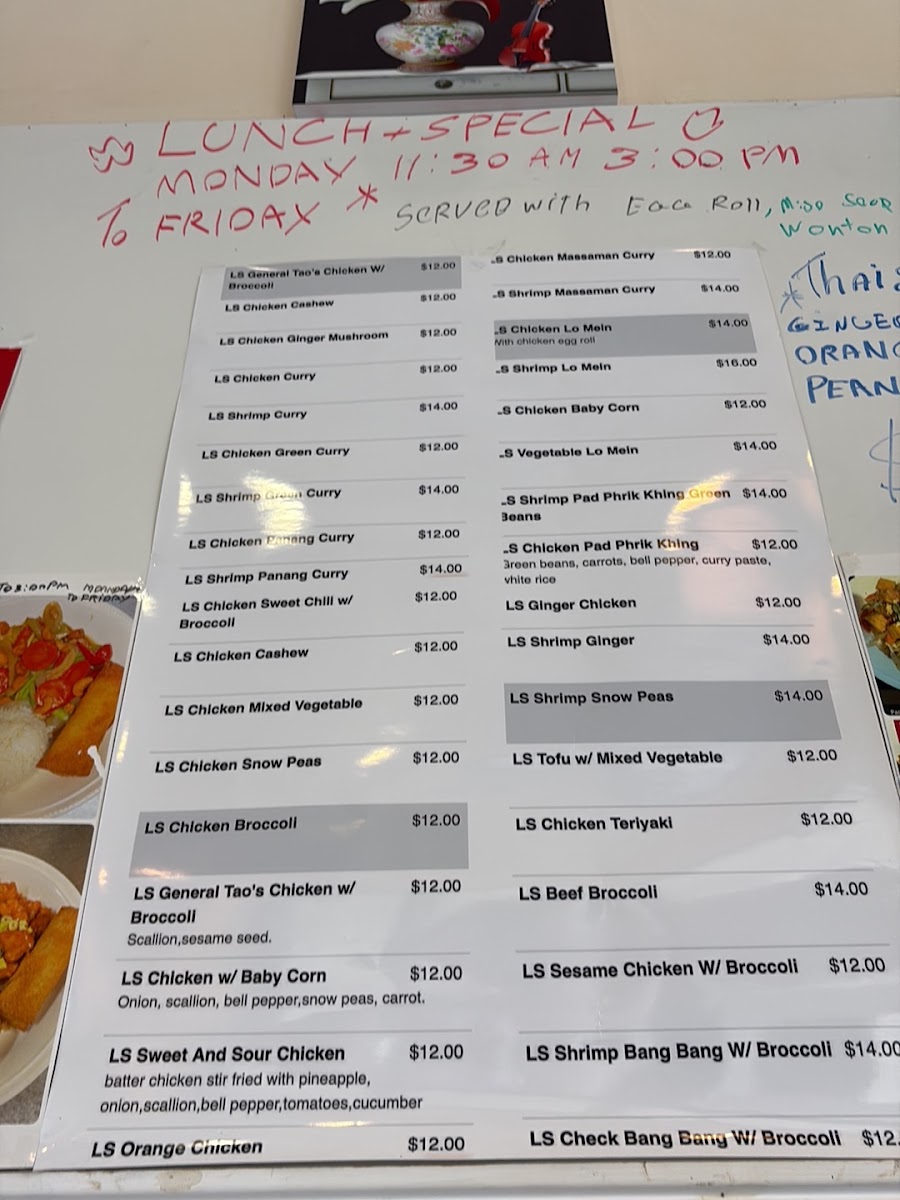 LUNCH + SPECIAL
MONDAY 11:30 AM 3:00 PM
To FRIDAY * SERVED with Egg Roll, Miso Soup
Wonton
*Thai
GINGER
ORANG
PEAN
$
TO 3:00PM MONDAY
TO FRIDAY
LS General Tao's Chicken W/ $12.00
Broccoli
LS Chicken Cashew $12.00
LS Chicken Ginger Mushroom $12.00
LS Chicken Curry $12.00
LS Shrimp Curry $14.00
LS Chicken Green Curry $12.00
LS Shrimp Green Curry $14.00
LS Chicken Panang Curry $12.00
LS Shrimp Panang Curry $14.00
LS Chicken Sweet Chili w/ $12.00
Broccoli
LS Chicken Cashew $12.00
LS Chicken Mixed Vegetable $12.00
LS Chicken Snow Peas $12.00
LS Chicken Broccoli $12.00
LS General Tao's Chicken w/ $12.00
Broccoli
Scallion,sesame seed.
LS Chicken w/ Baby Corn $12.00
Onion, scallion, bell pepper,snow peas, carrot.
LS Sweet And Sour Chicken $12.00
batter chicken stir fried with pineapple,
onion,scallion,bell pepper,tomatoes,cucumber
LS Orange Chicken $12.00
LS Chicken Massaman Curry $12.00
LS Shrimp Massaman Curry $14.00
LS Chicken Lo Mein $14.00
With chicken egg roll
LS Shrimp Lo Mein $16.00
LS Chicken Baby Corn $12.00
LS Vegetable Lo Mein $14.00
LS Shrimp Pad Phrik Khing Green $14.00
Beans
LS Chicken Pad Phrik Khing $12.00
Green beans, carrots, bell pepper, curry paste,
white rice
LS Ginger Chicken $12.00
LS Shrimp Ginger $14.00
LS Shrimp Snow Peas $14.00
LS Tofu w/ Mixed Vegetable $12.00
LS Chicken Teriyaki $12.00
LS Beef Broccoli $14.00
LS Sesame Chicken W/ Broccoli $12.00
LS Shrimp Bang Bang W/ Broccoli $14.00
LS Check Bang Bang W/ Broccoli $12.